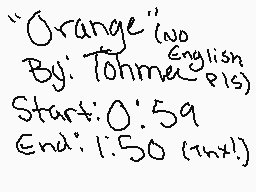 "Orange" (No English pls)
By: Tohma
Start: 0:59
End: 1:50 (Thx!)